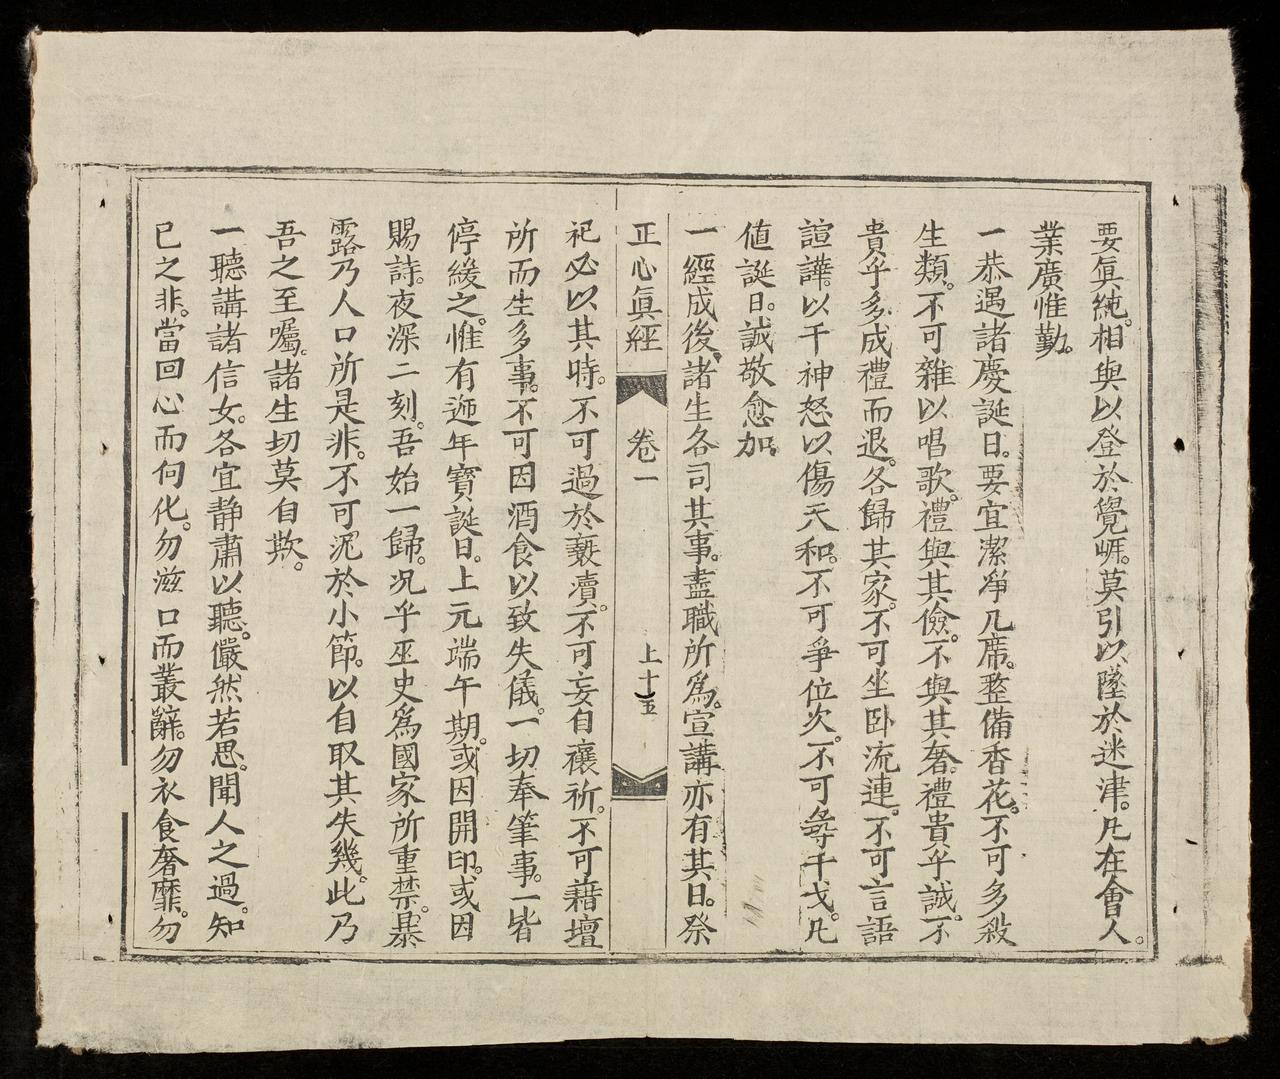 要眞純。相與以登於覺崕。莫引以墜於迷津。凡在會人。
業廣惟勤。
一恭遇諸慶誕日。要宜潔凈几席。整備香花。不可多殺
生類。不可雜以唱歌。禮與其儉。不與其奢。禮貴乎誠。不
貴乎多。成禮而退。各歸其家。不可坐卧流連。不可言語
諠譁。以干神怒以傷天和。不可爭位次。不可尋干戈。凡
値誕日。誠敬愈加。
一經成後。諸生各司其事。盡職所爲。宣講亦有其日。祭
正心眞經 卷一 上十五
祀必以其時。不可過於褻瀆。不可妄自禳祈。不可藉壇
所而生多事。不可因酒食以致失儀。一切奉筆事。一皆
停緩之。惟有𨒺年寶誕日。上元端午期。或因開印。或因
賜詩。夜深二刻。吾始一歸。况乎巫史爲國家所重禁。暴
露乃人口所是非。不可泥於小節。以自取其失幾。此乃
吾之至囑。諸生切莫自欺。
一聽講諸信女。各宜静肅以聽。儼然若思。聞人之過。知
已之非。當回心而向化。勿滋口而叢辭。勿衣食奢靡。勿